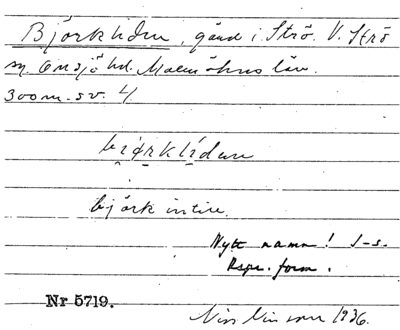 Björkliden, gård i Strö. V. Strö
sn Onsjö hd. Malmöhus län.
300 m. sv. 4.
bi̯ǿrklídan
björk intill.
Nytt namn! J-s.
Rspr. form.
Nr 5719.
1936.